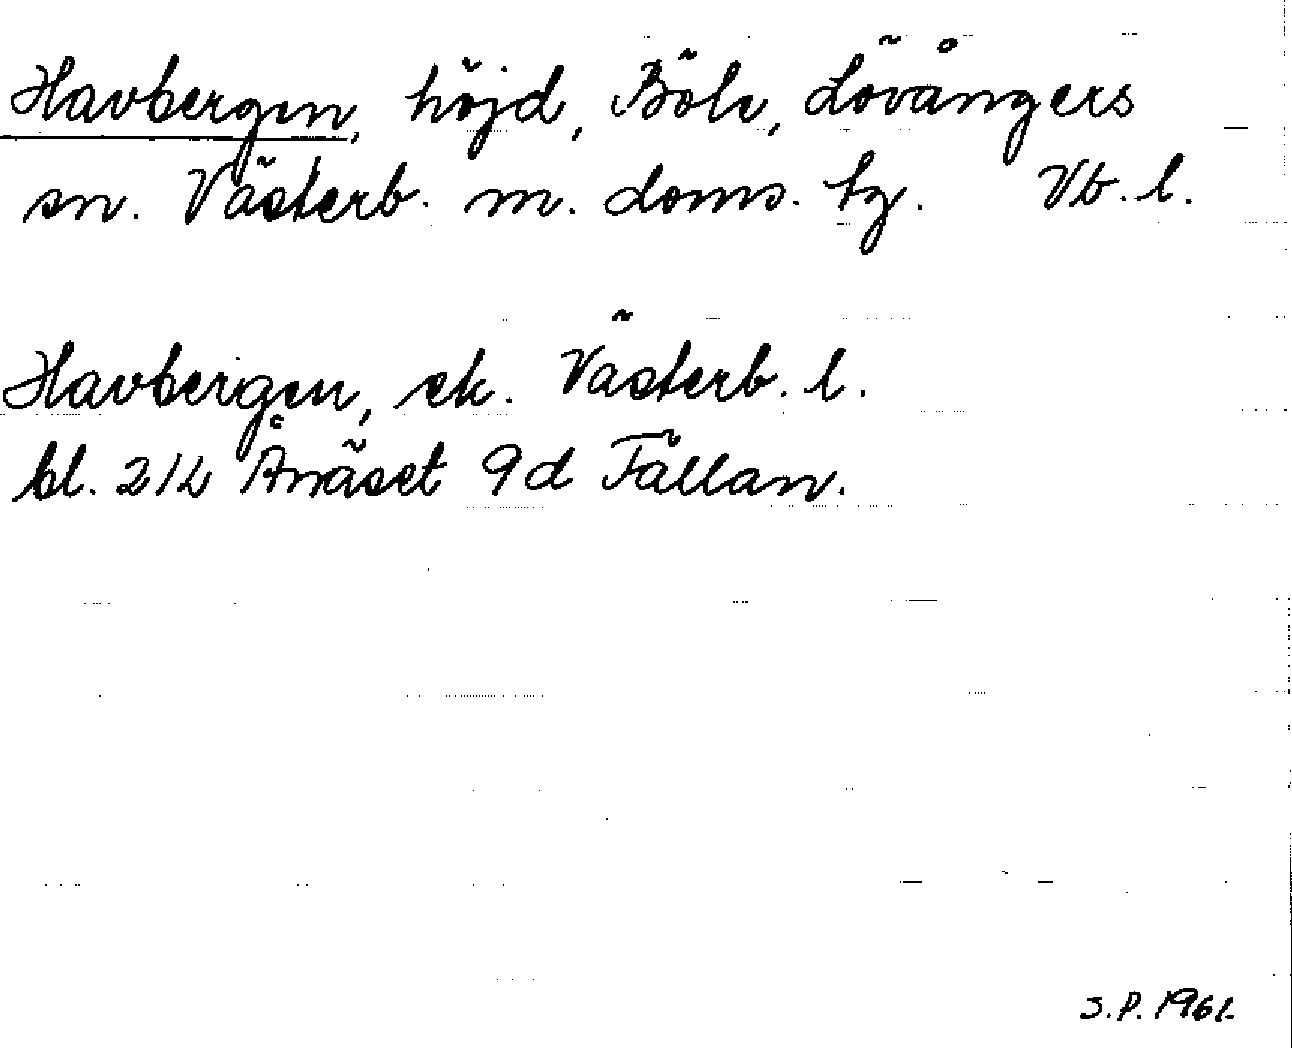 Havbergen, höjd, Böle, Lövångers
sn. Västerb. m. doms. tg. Vb. l.
Havbergen, ek. Västerb. l.
bl. 21L Ånäset 9d Fällan.
S.P. 1961.